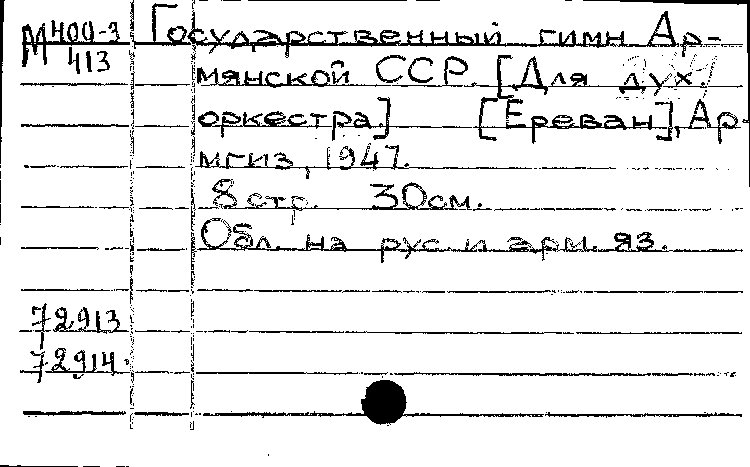 М400-3
413
Государственный гимн Ар-
мянской ССР. [Для дух.
оркестра] [Ереван], Ар-
мгиз, 1947.
8 стр. 30 см.
Обл. на рус. и арм. яз.
72913
72914.